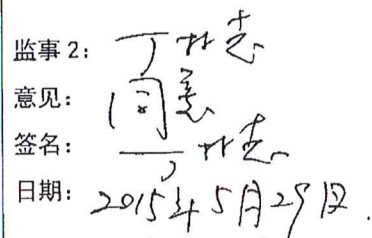 监事2：丁林志
意见：同意
签名：丁林志
日期：2015年5月29日.